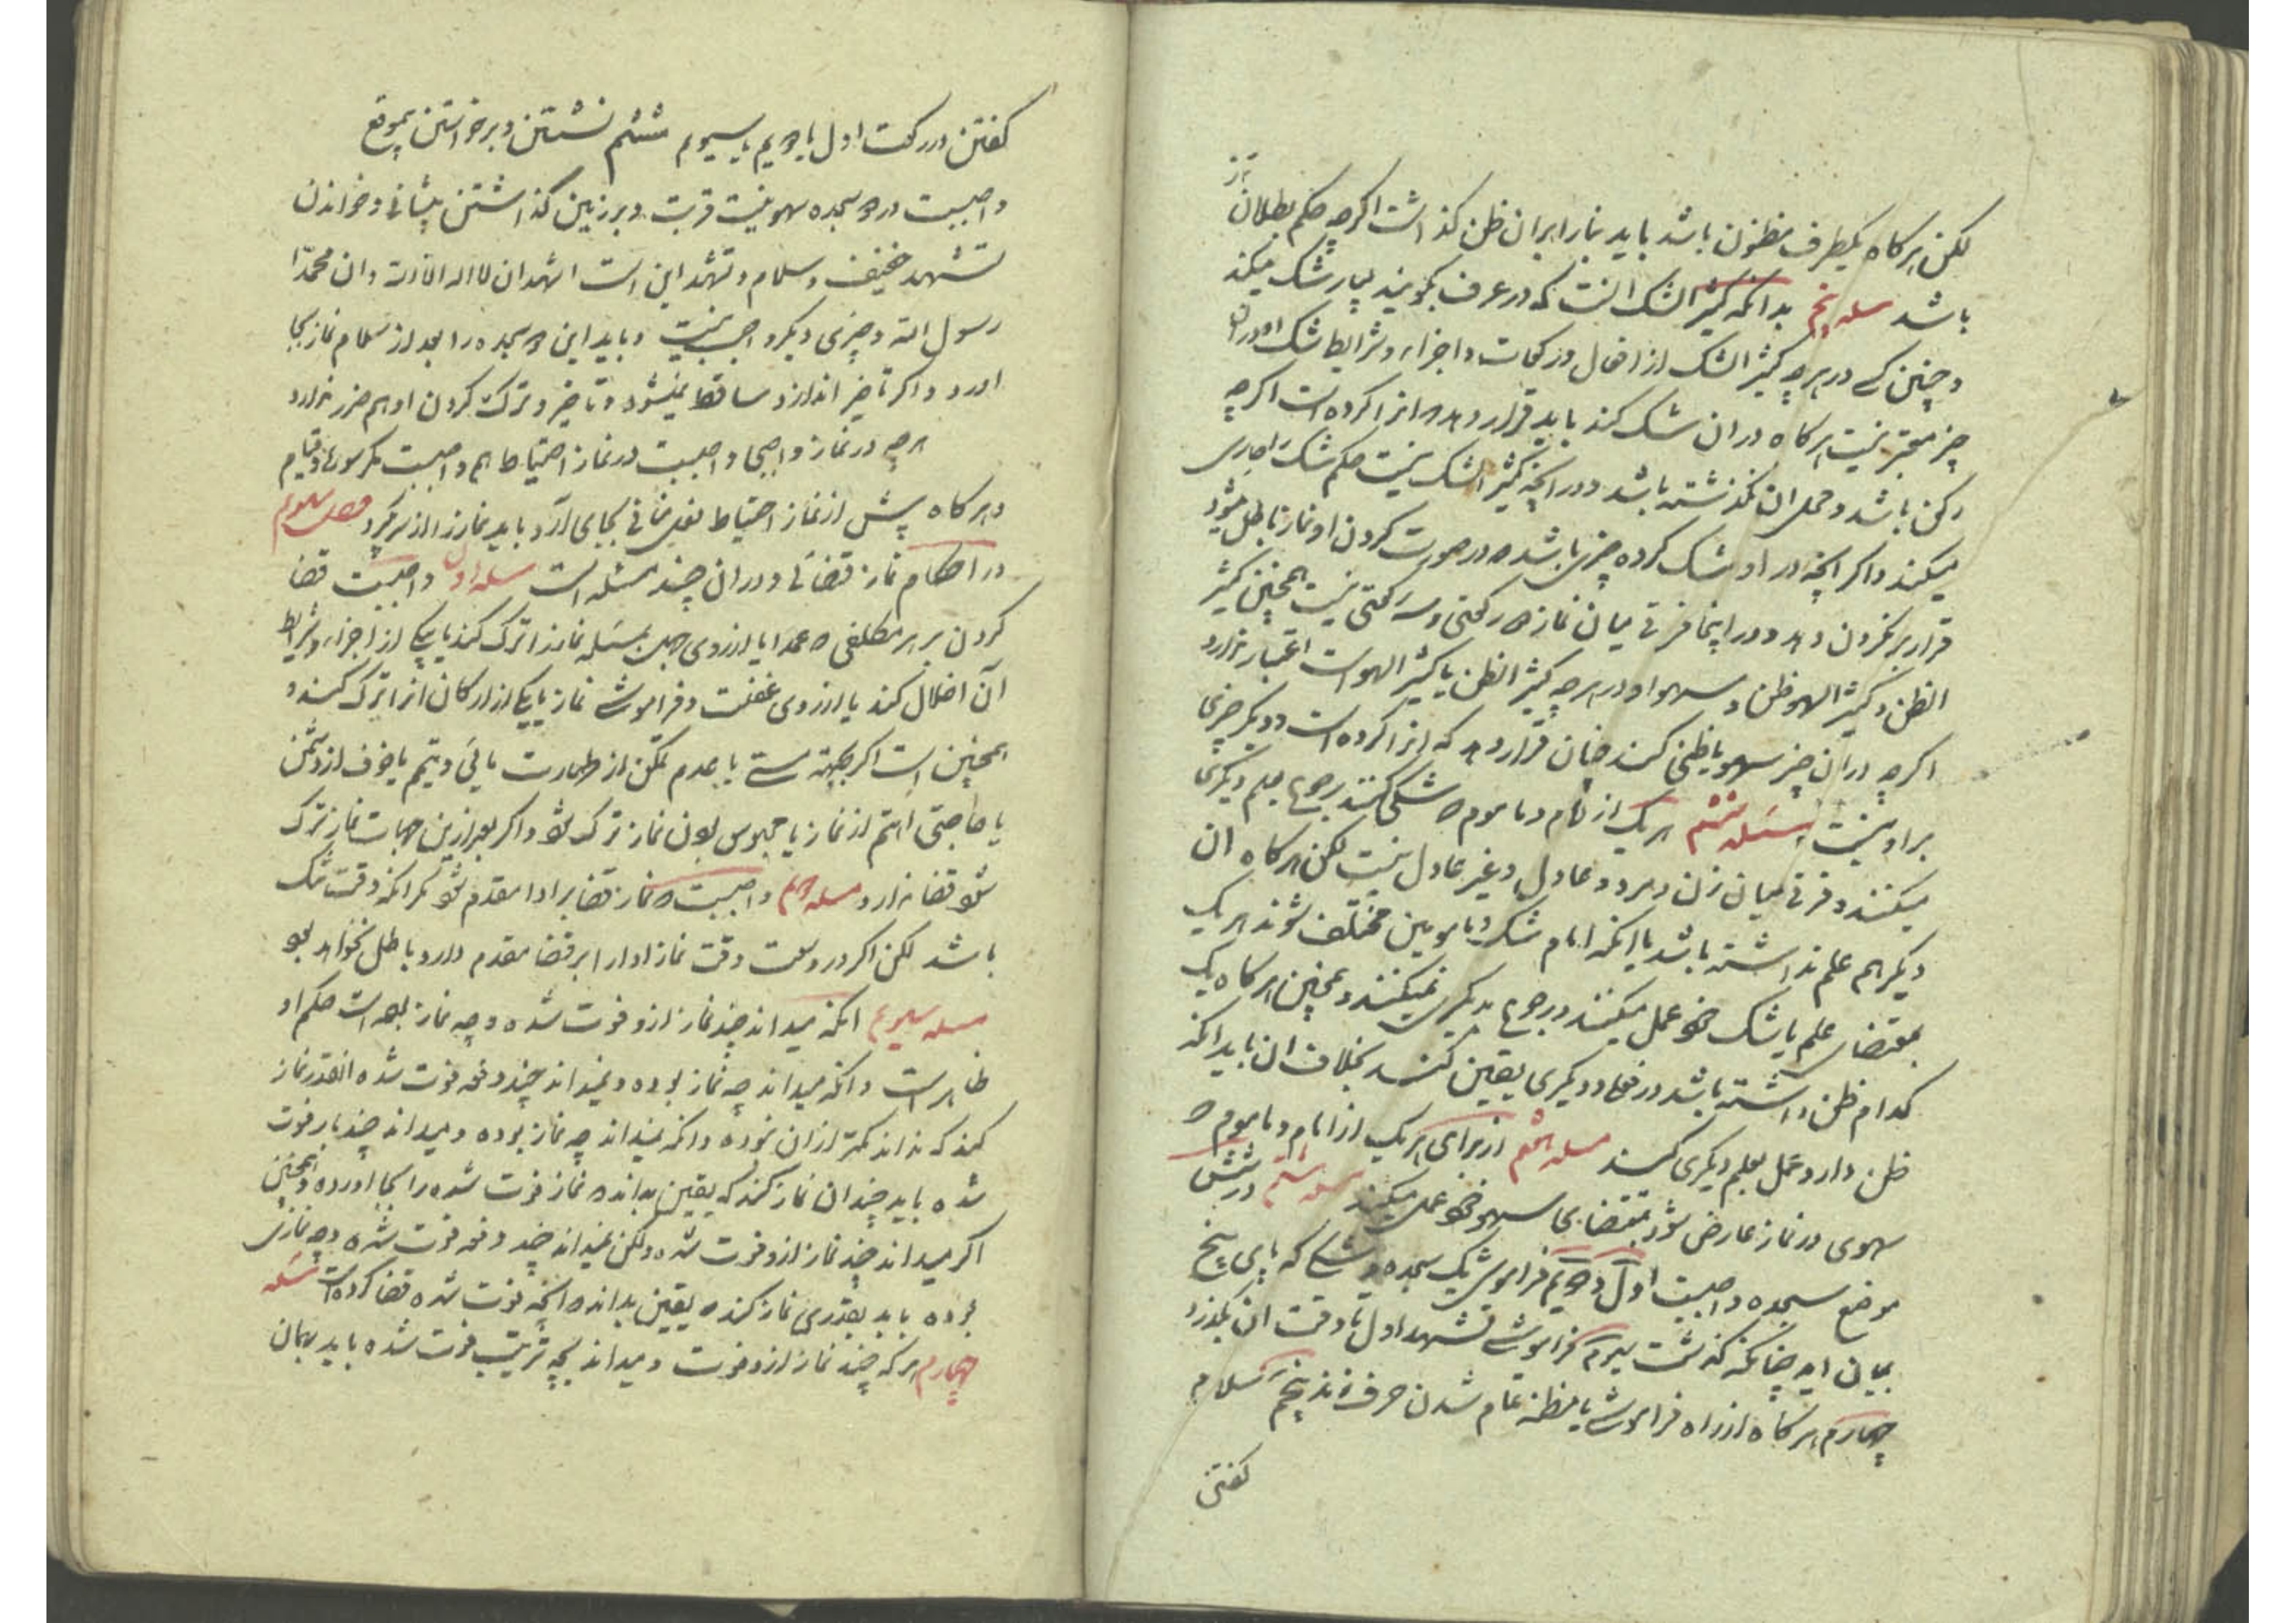 لکن هرکاه یکطرف مظنون باشد باید بنا را بران ظن کذاشت اکرچه حکم بطلان
باشد مسله پنجم بدانکه کثیر الشک انست که در عرف بکویند بسیار شک میکند
و چنین کسی در هرچه کثیر الشک از افعال و رکعات و اجزاء و شرایط شک او دران
چیز معتبر نیست هرکاه دران شک کند باید قرار دهد که انرا کرده است اکرچه
رکن باشد و محل ان نکذشته باشد و در انچه کثیر الشک نیست حکم شک را جاری
میکند و اکر انچه در او شک کرده چیزی باشد که در صورت کردن او نماز باطل میشود
قرار بر نکردن دهد و در اینجا فرقی میان نماز دو رکعتی و سه رکعتی نیست همچنین کثیر
الظن و کثیر السهو ظن و سهو او در هرچه کثیر الظن یا کثیر السهو است اعتبار ندارد
اکرچه دران چیز سهو یا ظنی کند چنان قرار دهد که انرا کرده است و دیکر چیزی
بر او نیست مسئله ششم هریک از امام و ماموم که شکی کنند رجوع بعلم دیکری
میکنند و فرقی میان زن و مرد و عادل و غیر عادل نیست لکن هرکاه ان
دیکر هم علم نداشته باشد یا انکه امام شک و مامومین مختلف شوند هریک
بمقتضای علم یا شک خود عمل میکنند و رجوع بدیکری نمیکنند و همچنین هرکاه یک
کدام ظن داشته باشد در فعلی و دیکری یقین کند بخلاف ان باید انکه
ظن دارد عمل بعلم دیکری کند مسله هفتم از برای هریک از امام و ماموم که
سهوی در نماز عارض شود بمقتضای سهو خود عمل میکند مسله هشتم در شش
موضع سجده واجبست اول و دویم فراموشی یک سجده و شکی که پای پنج
بمیان اید چنانکه کذشت سیوم فراموشی تشهد اول تا وقت ان بکذرد
چهارم هرکاه از راه فراموشی یا مظنه تمام شدن حرف زند پنجم سلام
کفتن
کفتن در رکعت اول یا دویم یا سیوم ششم نشستن و برخواستن بیموقع
واجبست در دو سجده سهو نیت قربت و بر زمین کذاشتن پیشانی و خواندن
تشهد خفیف و سلام و تشهد این است اشهد ان لا اله الا الله و ان محمدا
رسول الله و چیزی دیکر واجب نیست و باید این دو سجده را بعد از سلام نماز بجا
اورد و اکر تاخیر اندازد ساقط نمیشود و تاخیر و ترک کردن او هم ضرر ندارد
هرچه در نماز واجبی واجبست در نماز احتیاط هم واجبست مکر سوره و قیام
و هرکاه پیش از نماز احتیاط فعل منافی بجای آرد باید نماز را از سر کیرد فصل سیوم
در احکام نماز قضائی و دران چند مسئله است مسله اول واجبست قضا
کردن بر هر مکلفی که عمدا یا از روی جهل بمسئله نماز را ترک کند یا بیکی از اجزاء و شرایط
آن اخلال کند یا از روی غفلت و فراموشی نماز یا یکی از ارکان انرا ترک کند و
همچنین است اکر بجهة مستی یا بعدم تمکن از طهارت مائی و تیمم یا خوف از دشمن
یا حاجتی اهم از نماز یا محبوس بودن نماز ترک شود و اکر بغیر ازین جهات نماز ترک
شود قضا ندارد مسله دویم واجبست که نماز قضا بر ادا مقدم شود مکر انکه وقت تنک
باشد لکن اکر در وسعت وقت نماز ادا را بر قضا مقدم دارد باطل نخواهد بود
مسله سیوم انکه میداند چند نماز ازو فوت شده و چه نماز بوده است حکم او
ظاهر است و انکه میداند چه نماز بوده و نمیداند چند دفعه فوت شده انقدر نماز
کند که نداند کمتر از ان نبوده و انکه نمیداند چه نماز بوده و میداند چند بار فوت
شده باید چندان نماز کند که یقین بداند که نماز فوت شده را بجا اورده و همچنین
اکر میداند چند نماز ازو فوت شده ولکن نمیداند چند دفعه فوت شده و چه نمازی
بوده باید بقدری نماز کند که یقین بداند که انچه فوت شده قضا کرده است مسله
چهارم هرکه چند نماز ازو فوت و میداند بچه ترتیب فوت شده باید بهمان